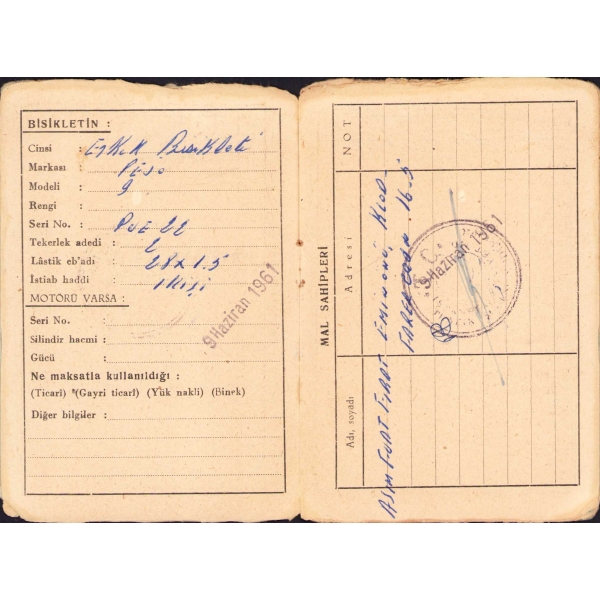 BİSİKLETİN :
Cinsi : Erkek Bisikleti
Markası : PEJO
Modeli : 9
Rengi :
Seri No. : PJE 22
Tekerlek adedi : 2
Lâstik eb'adi : 28 x 1.5
İstiab haddi : 1 Kişi
MOTÖRÜ VARSA :
Seri No. :
Silindir hacmi :
Gücü :
Ne maksatla kullanıldığı :
(Ticari) (Gayri ticari) (Yük nakli) (Binek)
Diğer bilgiler :
9 Haziran 1961
MAL SAHİPLERİ
Adı, soyadı
Adresi
NOT
ASIM FUAT FIRAT EMİNÖNÜ,
16-5
9 Haziran 1961
T. C.